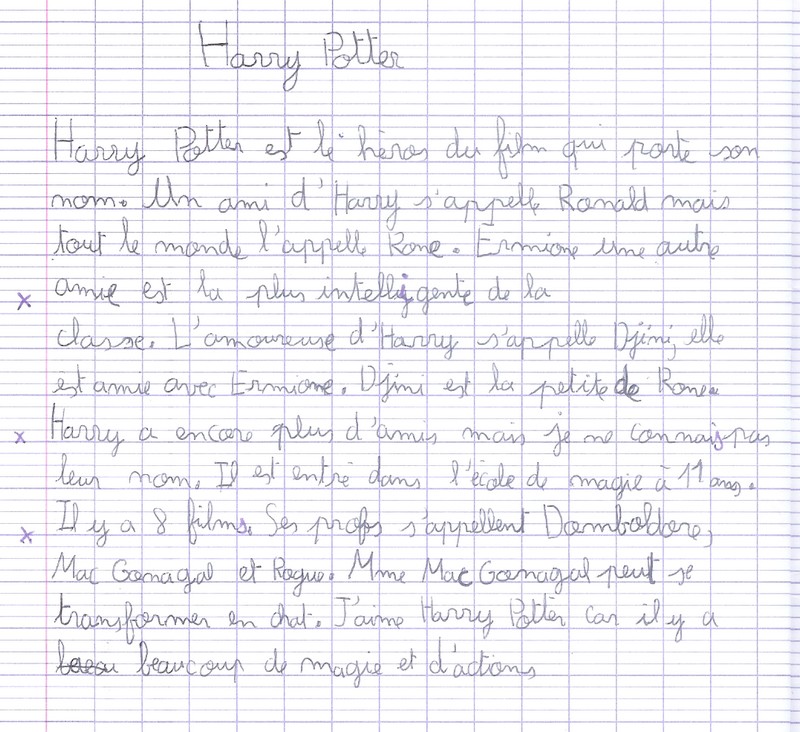 Harry Potter
Harry Potter est le héros du film qui porte son
nom. Un ami d'Harry s'appelle Ronald mais
tout le monde l'appelle Rone. Ermione une autre
x amie est la plus intelligente de la
classe. L'amoureuse d'Harry s'appelle Djini, elle
est amie avec Ermione. Djini est la petite de Rone.
x Harry a encore plus d'amis mais je ne connais pas
leur nom. Il est entré dans l'école de magie à 11 ans.
x Il y a 8 films. Ses profs s'appellent Domboldore,
Mac Gonagal et Rogue. Mme Mac Gonagal peut se
transformer en chat. J'aime Harry Potter car il y a
beaucoup de magie et d'actions